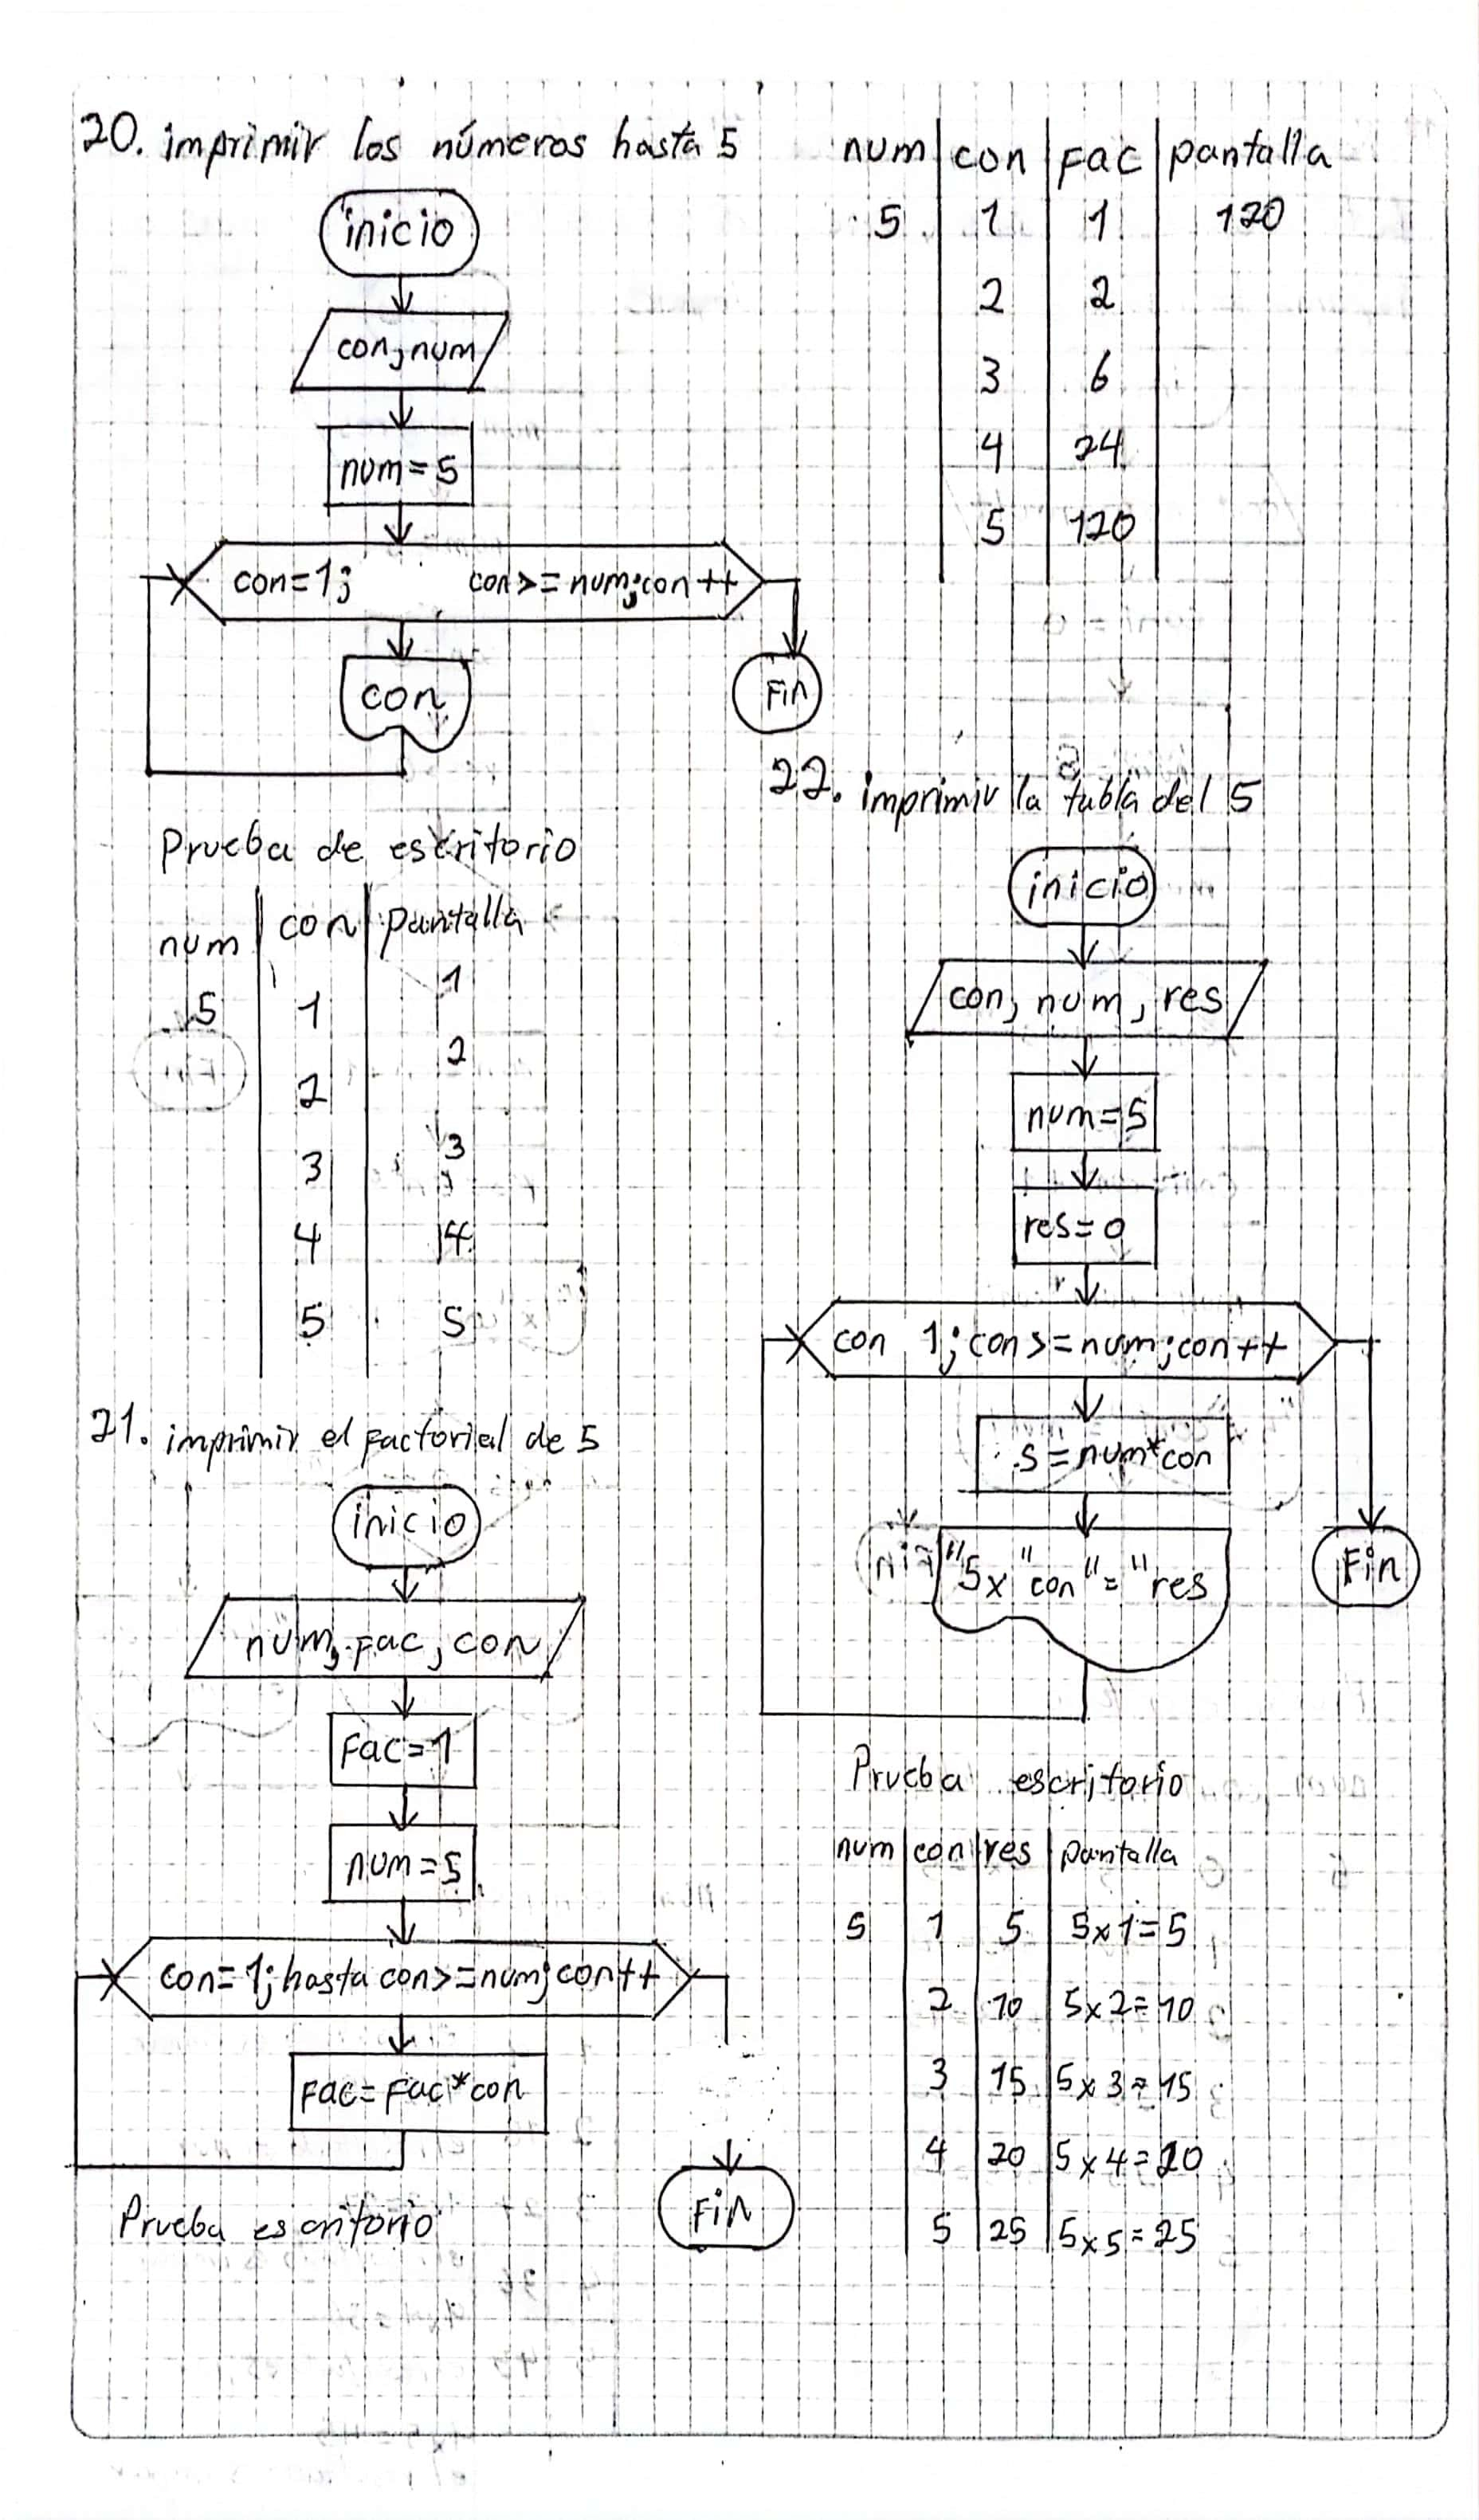 20. imprimir los números hasta 5
inicio
con, num
num=5
con=1; con>=num; con++
con
Fin
Prueba de escritorio
num con pantalla
5 1 1
2 2
3 3
4 4
5 5
21. imprimir el factorial de 5
inicio
num, fac, con
Fac=1
num=5
con=1; hasta con>=num; con++
Fac=Fac*con
Fin
Prueba escritorio
num con fac pantalla
5 1 1 120
2 2
3 6
4 24
5 120
22. imprimir la tabla del 5
inicio
con, num, res
num=5
res=0
con 1; con>=num; con++
s=num*con
"5x"con"="res
Fin
Prueba escritorio
num con res pantalla
5 1 5 5x1=5
2 10 5x2=10
3 15 5x3=15
4 20 5x4=20
5 25 5x5=25